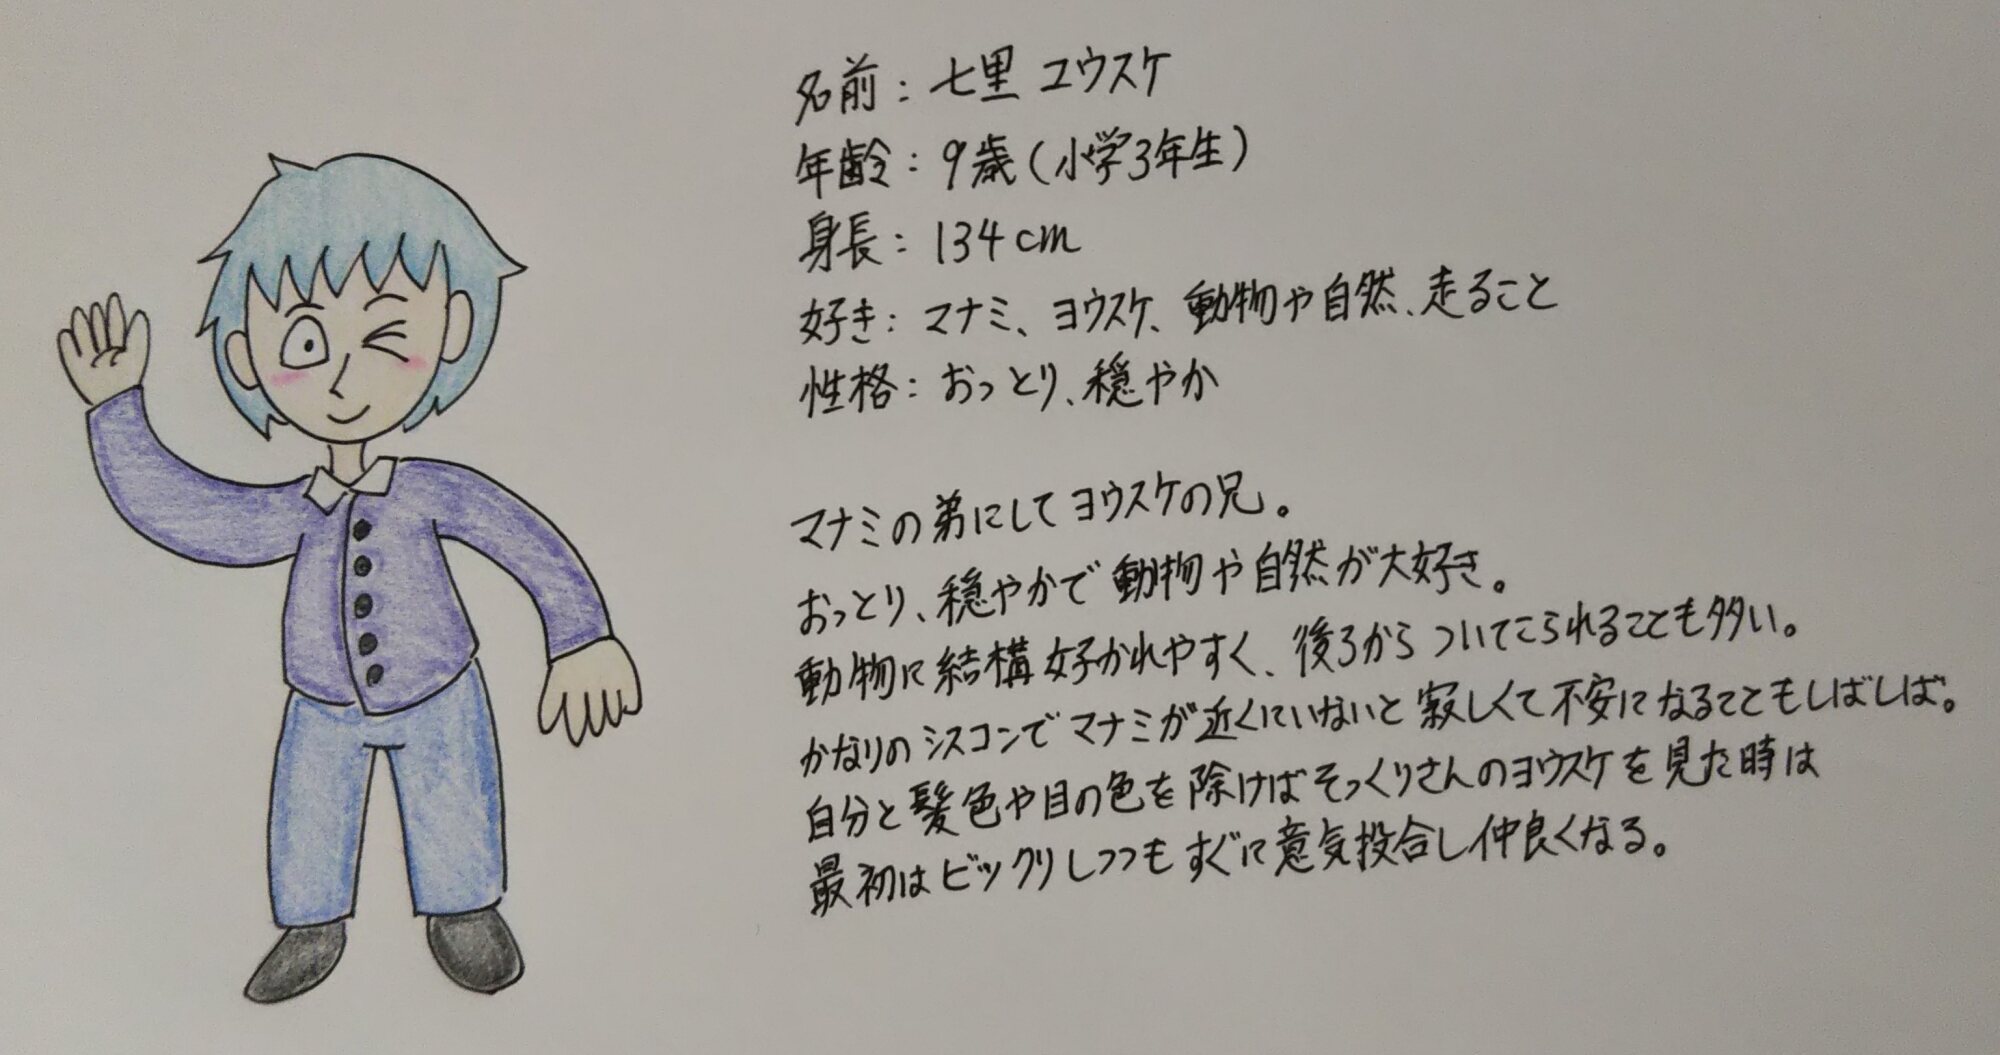 名前：七里 ユウスケ
年齢：9歳（小学3年生）
身長：134cm
好き：マナミ、ヨウスケ、動物や自然、走ること
性格：おっとり、穏やか
マナミの弟にしてヨウスケの兄。
おっとり、穏やかで動物や自然が大好き。
動物に結構好かれやすく、後ろからついてこられることも多い。
かなりのシスコンでマナミが近くにいないと寂しくて不安になることもしばしば。
自分と髪色や目の色を除けばそっくりさんのヨウスケを見た時は
最初はビックリしつつもすぐに意気投合し仲良くなる。